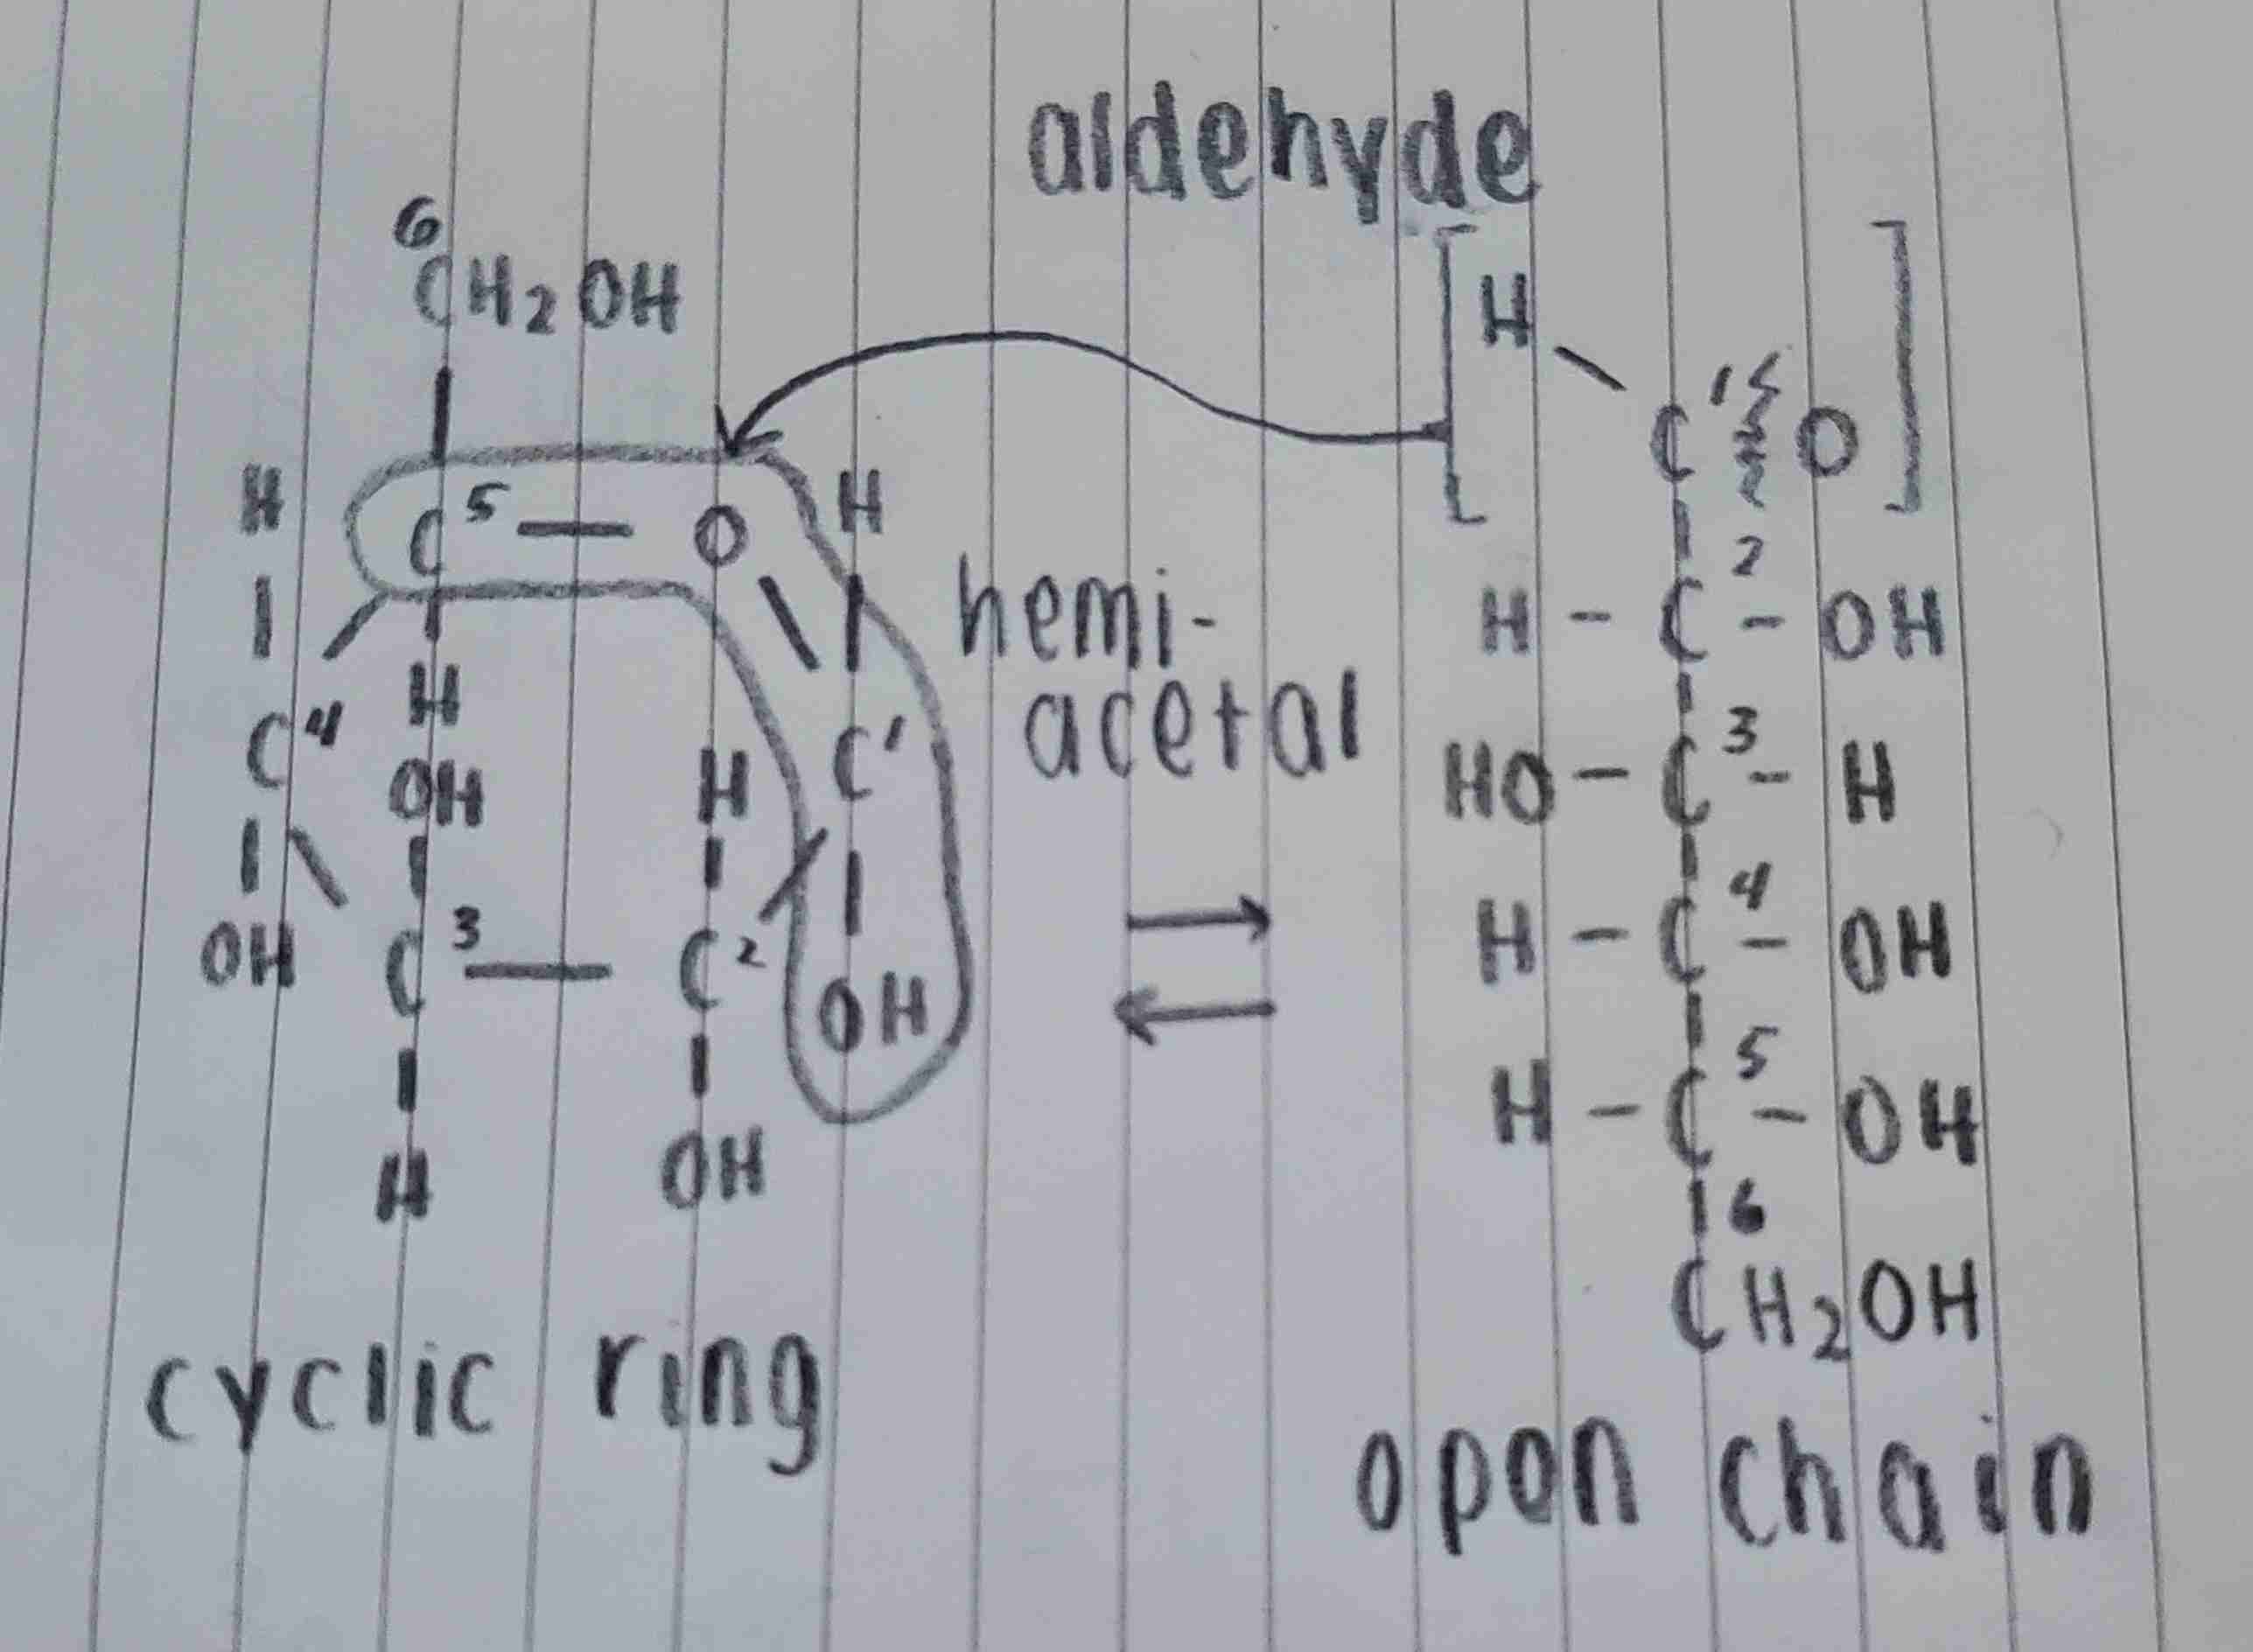 aldehyde
6
CH2OH
H
C 1 O
H
C 5 — O
H
hemi-
acetal
2
H - C - OH
C 4
H
OH
H
C 1
3
HO - C - H
OH
C 3 — C 2
OH
H
OH
4
H - C - OH
5
H - C - OH
6
CH2OH
cyclic ring
open chain